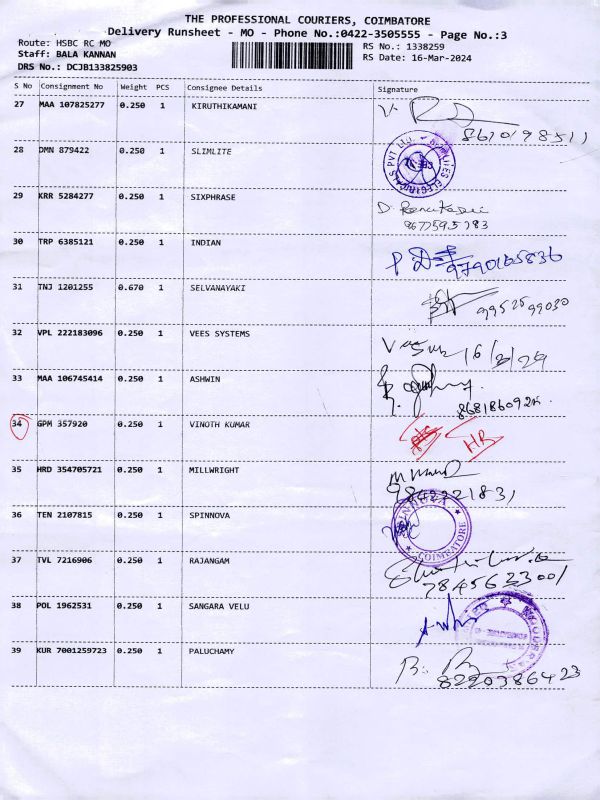 THE PROFESSIONAL COURIERS, COIMBATORE
Delivery Runsheet - MO - Phone No.:0422-3505555 - Page No.:3
Route: HSBC RC MO
RS No.: 1338259
Staff: BALA KANNAN
RS Date: 16-Mar-2024
DRS No.: DCJB133825903
S No Consignment No Weight PCS Consignee Details Signature
27 MAA 107825277 0.250 1 KIRUTHIKAMANI
28 DMN 879422 0.250 1 SLIMLITE
29 KRR 5284277 0.250 1 SIXPHRASE
8677595783
30 TRP 6385121 0.250 1 INDIAN
9790165836
31 TNJ 1201255 0.670 1 SELVANAYAKI
9952599030
32 VPL 222183096 0.250 1 VEES SYSTEMS
16/3/24
33 MAA 106745414 0.250 1 ASHWIN
34 GPM 357920 0.250 1 VINOTH KUMAR HR
35 HRD 354705721 0.250 1 MILLWRIGHT
36 TEN 2107815 0.250 1 SPINNOVA
COIMBATORE
37 TVL 7216906 0.250 1 RAJANGAM
7845623001
38 POL 1962531 0.250 1 SANGARA VELU
39 KUR 7001259723 0.250 1 PALUCHAMY
8220386423